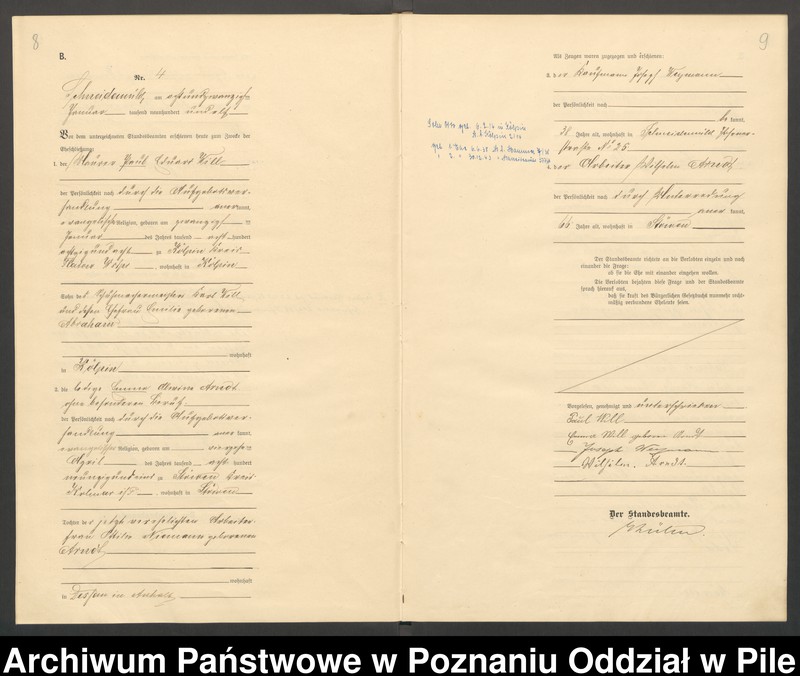 8
B.
Nr. 4
Schneidemühl, am achtundzwanzigsten
Januar tausend neunhundert und elf.
Vor dem unterzeichneten Standesbeamten erschienen heute zum Zwecke der
Eheschließung:
1. der Maurer Paul Eduard Will
der Persönlichkeit nach durch die Aufgebotsver-
handlung anerkannt,
evangelischer Religion, geboren am zwanzigsten
Januar des Jahres tausend acht hundert
achtzigundacht zu Kölpin Kreis
wohnhaft in Kölpin
Sohn des Schuhmachermeisters Karl Will
und dessen Ehefrau Emilie geborenen
Abraham
wohnhaft
in Kölpin
2. die ledige Emma Arndt
ohne besonderen Beruf
der Persönlichkeit nach durch die Aufgebotsver-
handlung anerkannt,
evangelischer Religion, geboren am
April des Jahres tausend acht hundert
neunzigundeins zu Stöwen Kreis
Kolmar i/P. wohnhaft in Stöwen
Tochter der jetzt verehelichten Arbeiter-
frau Niemann geborenen
Arndt
wohnhaft
in Dessau in Anhalt
9
Als Zeugen waren zugezogen und erschienen:
3. der Kaufmann Joseph Weymann
der Persönlichkeit nach
bekannt,
Jahre alt, wohnhaft in Schneidemühl Posener-
straße N° 25
4. der Arbeiter Wilhelm Arndt
der Persönlichkeit nach durch Unterredung
anerkannt,
66 Jahre alt, wohnhaft in Stöwen
Der Standesbeamte richtete an die Verlobten einzeln und nach
einander die Frage:
ob sie die Ehe mit einander eingehen wollen.
Die Verlobten bejahten diese Frage und der Standesbeamte
sprach hierauf aus,
daß sie kraft des Bürgerlichen Gesetzbuchs nunmehr recht-
mäßig verbundene Eheleute seien.
Vorgelesen, genehmigt und unterschrieben
Paul Will
Emma Will geborne Arndt
Joseph Weymann
Wilhelm Arndt
Der Standesbeamte.
Archiwum Państwowe w Poznaniu Oddział w Pile